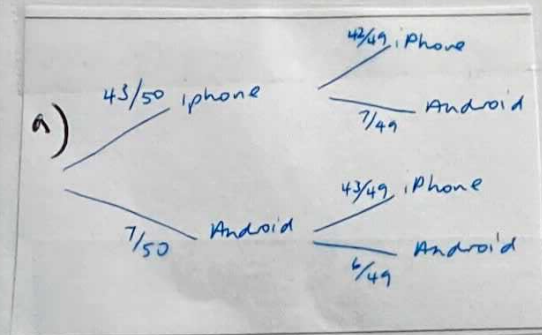 a)
43/50 iphone
42/49 iPhone
7/49 Android
7/50 Android
43/49 iPhone
6/49 Android